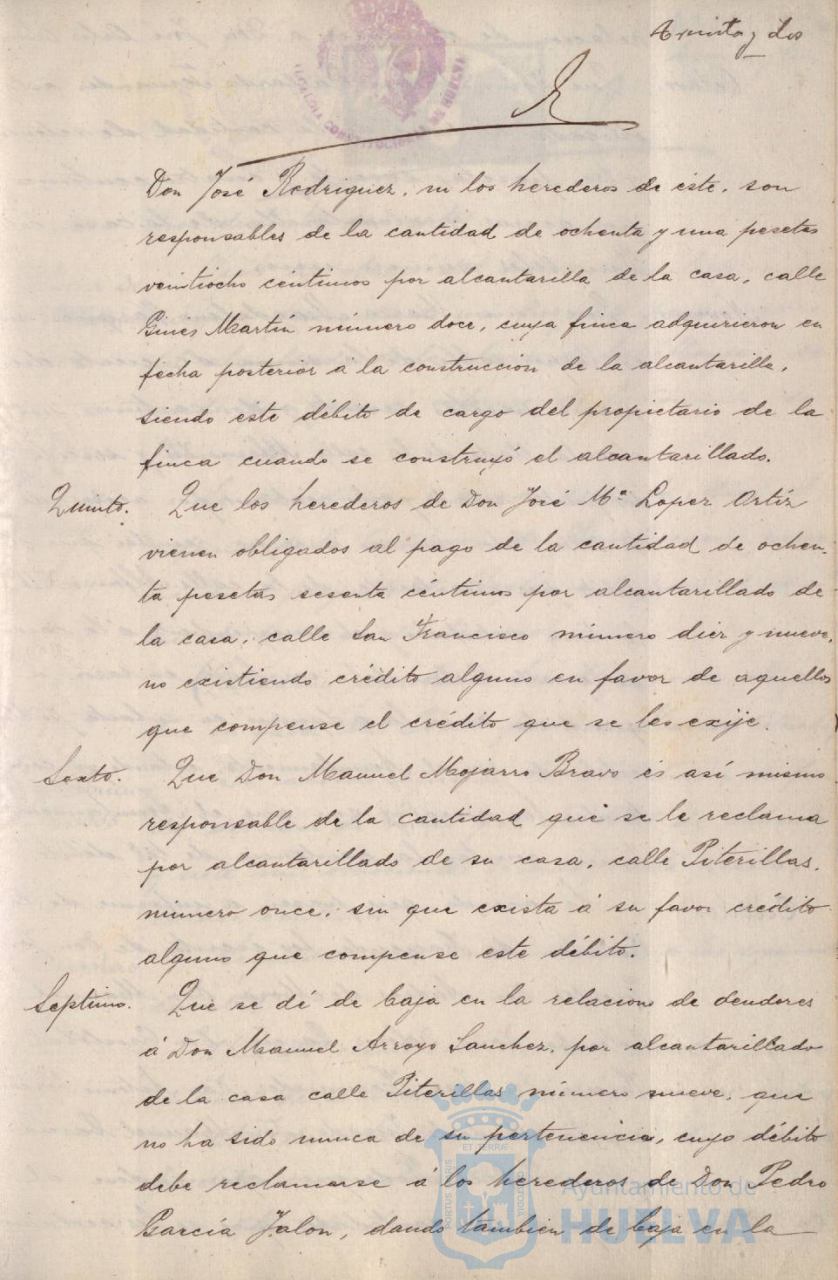 treinta y dos
ALCALDIA CONSTITUCIONAL DE HUELVA
Don José Rodriguez, ni los herederos de éste, son
responsables de la cantidad de ochenta y una pesetas
veintiocho céntimos por alcantarilla de la casa, calle
Ginés Martín número doce, cuya finca adquirieron en
fecha posterior á la construcción de la alcantarilla,
siendo este débito de cargo del propietario de la
finca cuando se construyó el alcantarillado.
Quinto. Que los herederos de Don José Mª Lopez Ortíz
vienen obligados al pago de la cantidad de ochen-
ta pesetas sesenta céntimos por alcantarillado de
la casa, calle San Francisco número diez y nueve,
no existiendo crédito alguno en favor de aquellos
que compense el crédito que se les exije.
Sexto. Que Don Manuel Mojarro Bravo es así mismo
responsable de la cantidad que se le reclama
por alcantarillado de su casa, calle Piterillas,
número once, sin que exista á su favor crédito
alguno que compense este débito.
Septimo. Que se dé de baja en la relacion de deudores
á Don Manuel Arroyo Sanchez, por alcantarillado
de la casa calle Piterillas número nueve, que
no ha sido nunca de su pertenencia, cuyo débito
debe reclamarse á los herederos de Don Pedro
García Jalon, dando tambien de baja en la
Ayuntamiento de
HUELVA